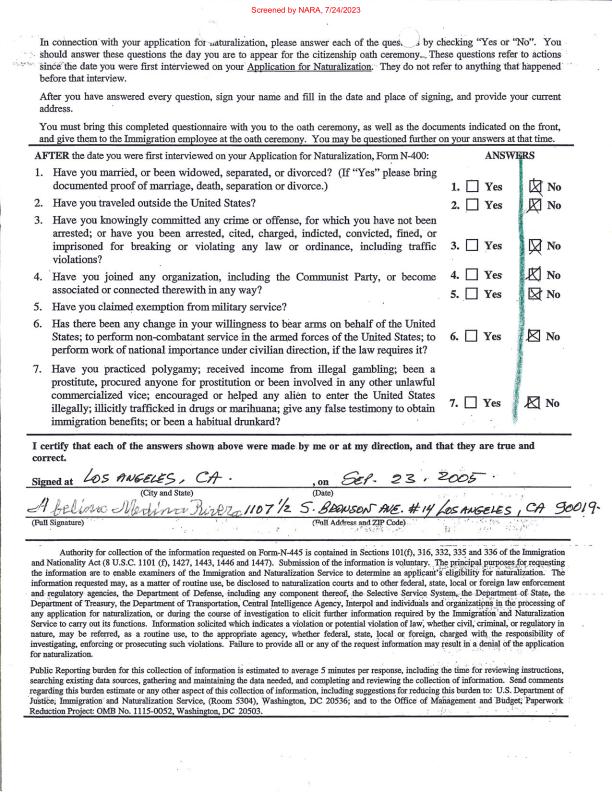 Screened by NARA, 7/24/2023
In connection with your application for naturalization, please answer each of the ques by checking "Yes or "No". You
should answer these questions the day you are to appear for the citizenship oath ceremony. These questions refer to actions
since the date you were first interviewed on your Application for Naturalization. They do not refer to anything that happened
before that interview.
After you have answered every question, sign your name and fill in the date and place of signing, and provide your current
address.
You must bring this completed questionnaire with you to the oath ceremony, as well as the documents indicated on the front,
and give them to the Immigration employee at the oath ceremony. You may be questioned further on your answers at that time.
AFTER the date you were first interviewed on your Application for Naturalization, Form N-400: ANSWERS
1. Have you married, or been widowed, separated, or divorced? (If "Yes" please bring
documented proof of marriage, death, separation or divorce.) 1. ☐ Yes ☒ No
2. Have you traveled outside the United States? 2. ☐ Yes ☒ No
3. Have you knowingly committed any crime or offense, for which you have not been
arrested; or have you been arrested, cited, charged, indicted, convicted, fined, or
imprisoned for breaking or violating any law or ordinance, including traffic 3. ☐ Yes ☒ No
violations?
4. Have you joined any organization, including the Communist Party, or become 4. ☐ Yes ☒ No
associated or connected therewith in any way? 5. ☐ Yes ☒ No
5. Have you claimed exemption from military service?
6. Has there been any change in your willingness to bear arms on behalf of the United
States; to perform non-combatant service in the armed forces of the United States; to 6. ☐ Yes ☒ No
perform work of national importance under civilian direction, if the law requires it?
7. Have you practiced polygamy; received income from illegal gambling; been a
prostitute, procured anyone for prostitution or been involved in any other unlawful
commercialized vice; encouraged or helped any alien to enter the United States
illegally; illicitly trafficked in drugs or marihuana; give any false testimony to obtain 7. ☐ Yes ☒ No
immigration benefits; or been a habitual drunkard?
I certify that each of the answers shown above were made by me or at my direction, and that they are true and
correct.
Signed at LOS ANGELES, CA. , on SEP. 23. 2005.
(City and State) (Date)
Abelino Medina Rivera 1107 1/2 S. BRONSON AVE. #14 LOS ANGELES, CA 90019.
(Full Signature) (Full Address and ZIP Code)
Authority for collection of the information requested on Form-N-445 is contained in Sections 101(f), 316, 332, 335 and 336 of the Immigration
and Nationality Act (8 U.S.C. 1101 (f), 1427, 1443, 1446 and 1447). Submission of the information is voluntary. The principal purposes for requesting
the information are to enable examiners of the Immigration and Naturalization Service to determine an applicant's eligibility for naturalization. The
information requested may, as a matter of routine use, be disclosed to naturalization courts and to other federal, state, local or foreign law enforcement
and regulatory agencies, the Department of Defense, including any component thereof, the Selective Service System, the Department of State, the
Department of Treasury, the Department of Transportation, Central Intelligence Agency, Interpol and individuals and organizations in the processing of
any application for naturalization, or during the course of investigation to elicit further information required by the Immigration and Naturalization
Service to carry out its functions. Information solicited which indicates a violation or potential violation of law, whether civil, criminal, or regulatory in
nature, may be referred, as a routine use, to the appropriate agency, whether federal, state, local or foreign, charged with the responsibility of
investigating, enforcing or prosecuting such violations. Failure to provide all or any of the request information may result in a denial of the application
for naturalization.
Public Reporting burden for this collection of information is estimated to average 5 minutes per response, including the time for reviewing instructions,
searching existing data sources, gathering and maintaining the data needed, and completing and reviewing the collection of information. Send comments
regarding this burden estimate or any other aspect of this collection of information, including suggestions for reducing this burden to: U.S. Department of
Justice, Immigration and Naturalization Service, (Room 5304), Washington, DC 20536; and to the Office of Management and Budget, Paperwork
Reduction Project: OMB No. 1115-0052, Washington, DC 20503.